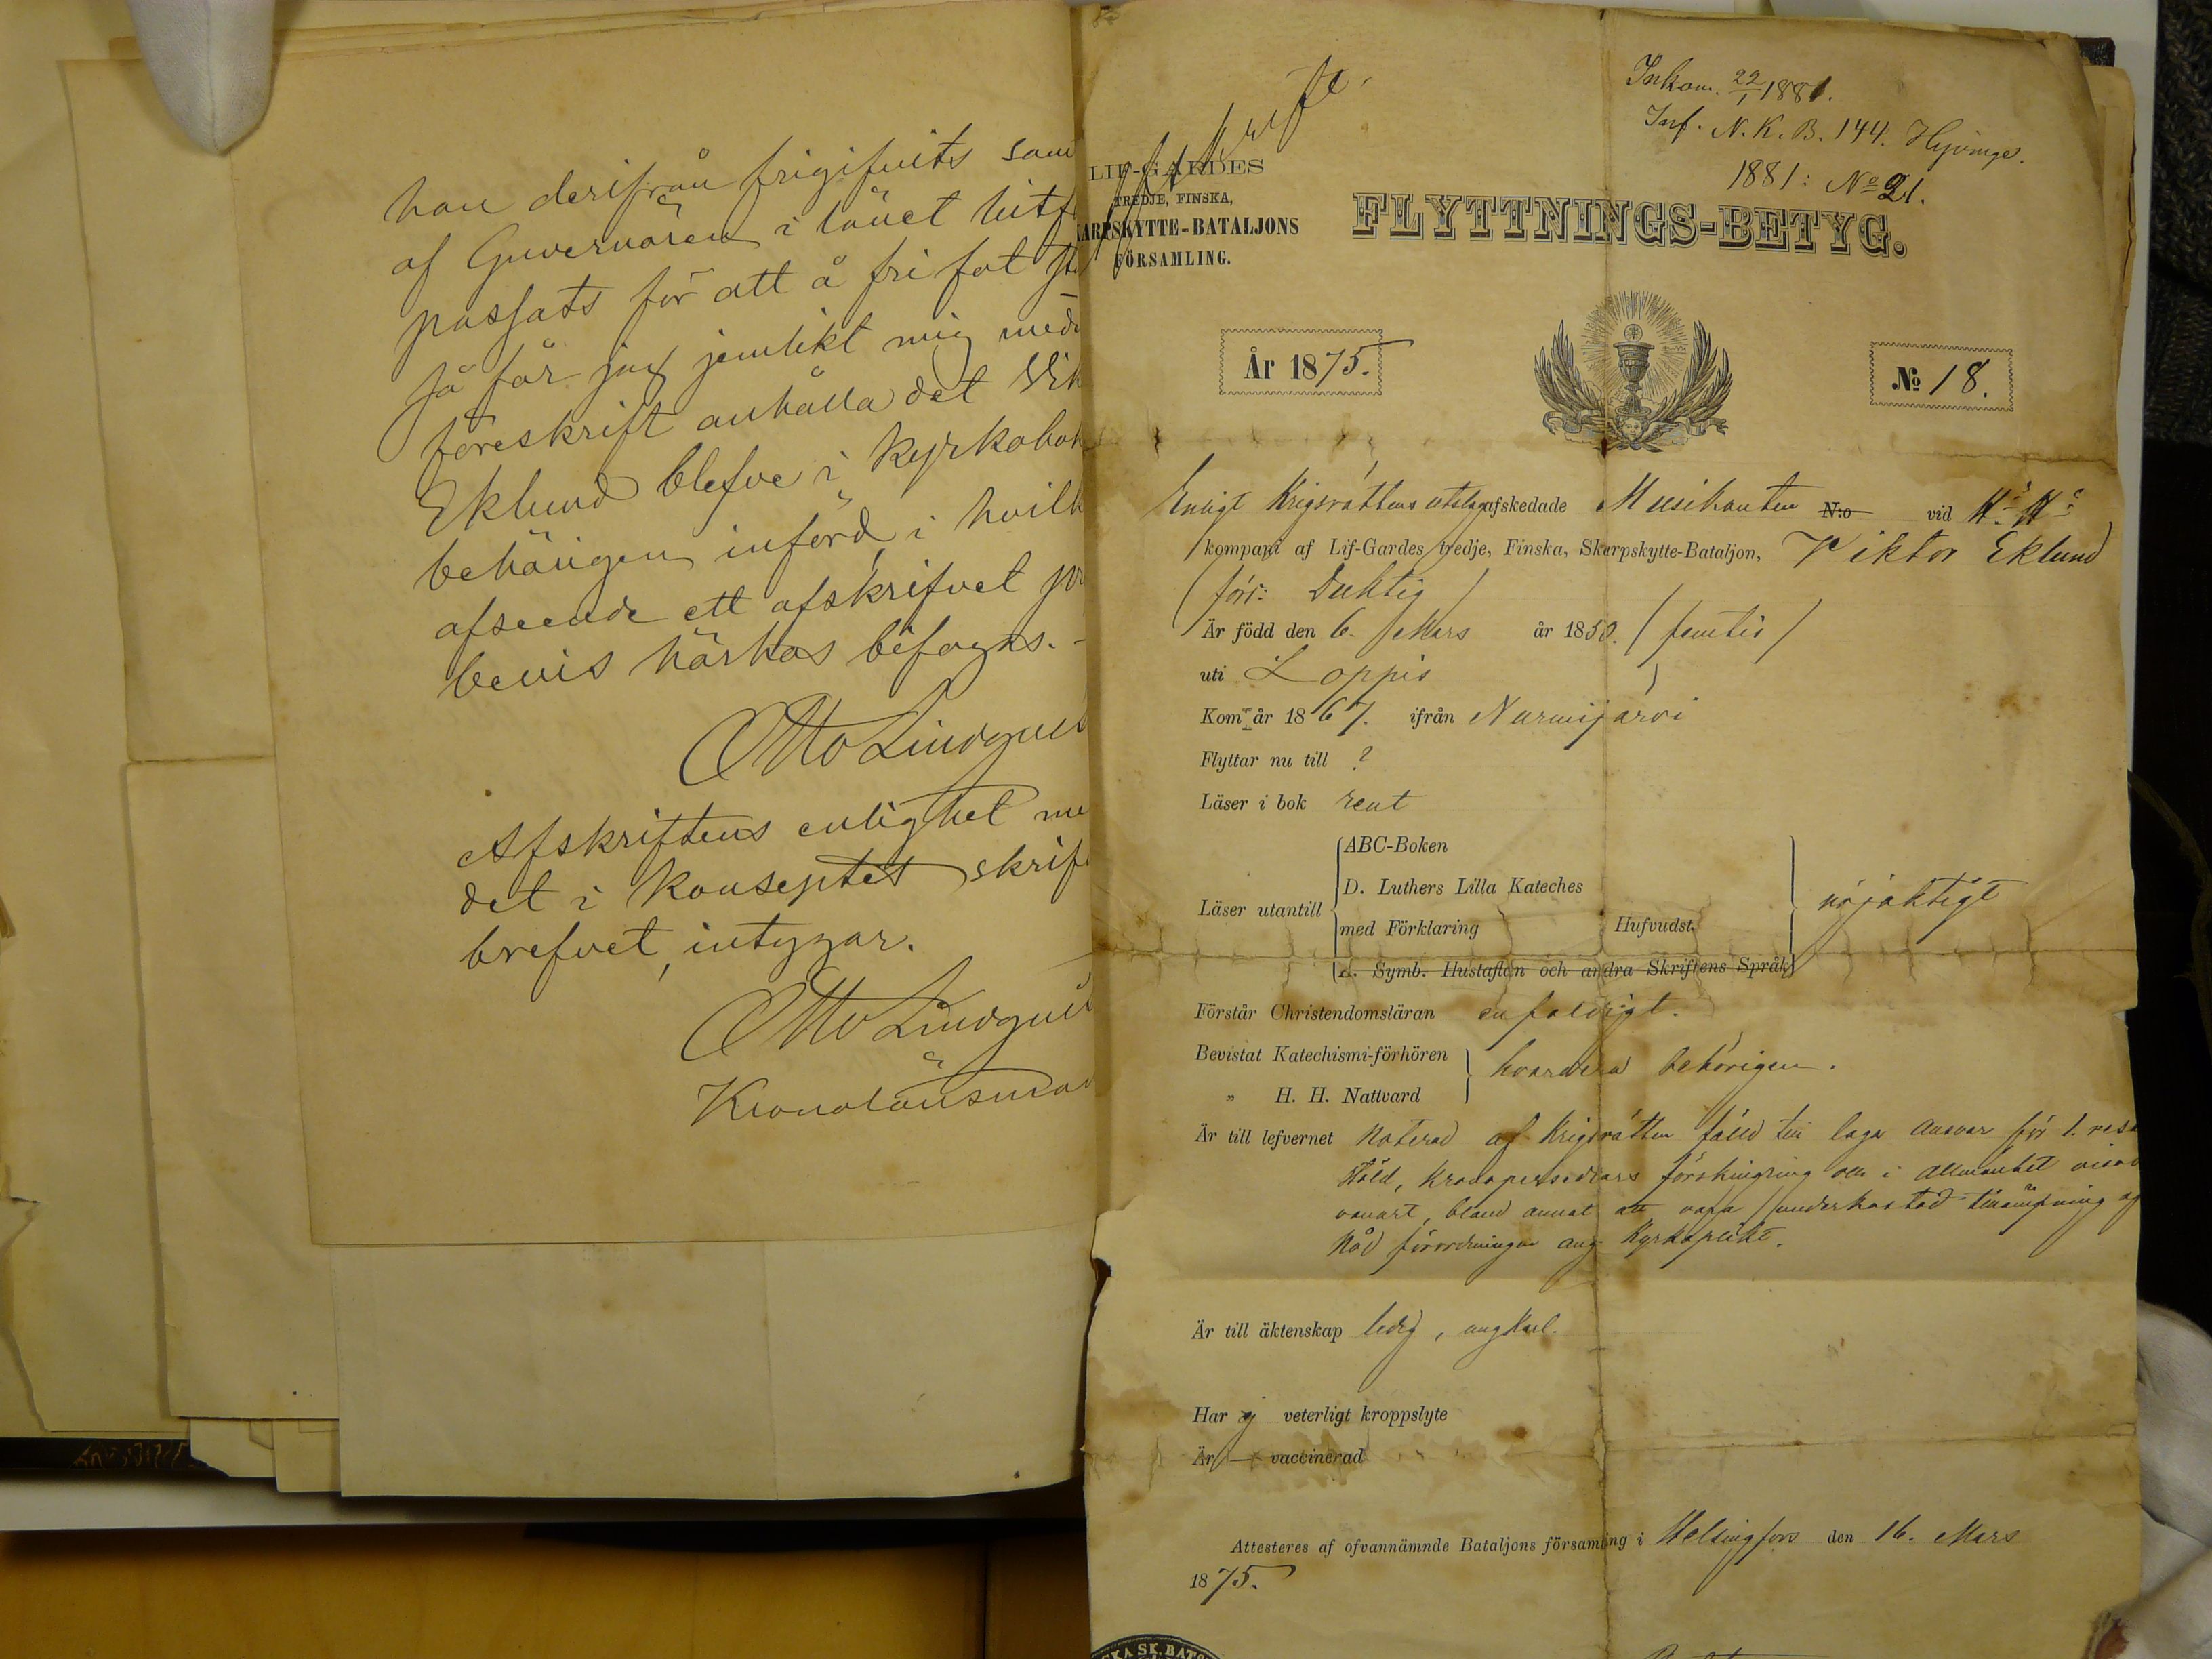 han derifrån frigifvits sam
af Guvernören i länet hitf
passats för att å fri fot
så får jag jemlikt mig med
föreskrift anhålla det Vik
Eklund blefve i kyrkobok
behörigen införd, i hvilk
afseende ett afskrifvet
bevis härhos bifogas. -
Otto Lindqvist
Afskriftens enlighet me
det i konseptet skrif
brefvet, intygar.
Otto Lindqvis
Kronolänsman
Afskrift.
Inkom. 22/1 1881.
Inf. N. K. B. 144. Hyvinge.
1881: No 21.
LIF-GARDES
TREDJE, FINSKA,
KARPSKYTTE-BATALJONS
FÖRSAMLING.
FLYTTNINGS-BETYG.
År 1875.
No 18.
Enligt Krigsrättens utslag afskedade Musikanten N:o vid
kompani af Lif-Gardes tredje, Finska, Skarpskytte-Bataljon, Viktor Eklund
(förr: Duktig)
Är född den 6. Mars år 1850. (femtio)
uti Loppis
Kom år 1867. ifrån Nurmijärvi
Flyttar nu till ?
Läser i bok rent
ABC-Boken
D. Luthers Lilla Kateches
Läser utantill med Förklaring Hufvudst. nöjaktigt
A. Symb. Hustaflan och andra Skriftens Språk
Förstår Christendomsläran enfaldigt.
Bevistat Katechismi-förhören
" H. H. Nattvard hvardera behörigen.
Är till lefvernet noterad af Krigsrätten fälld till laga ansvar för 1. resa
stöld, kronopersedlars förskingring och i allmänhet visad
vanart, bland annat att vara underkastad tillämpning af
Nåd. förordningen ang. Kyrkoplikt.
Är till äktenskap ledig, ungkarl.
Har ej veterligt kroppslyte
Är — vaccinerad
Attesteres af ofvannämnde Bataljons församling i Helsingfors den 16. Mars
1875.
SKA SK. BATS